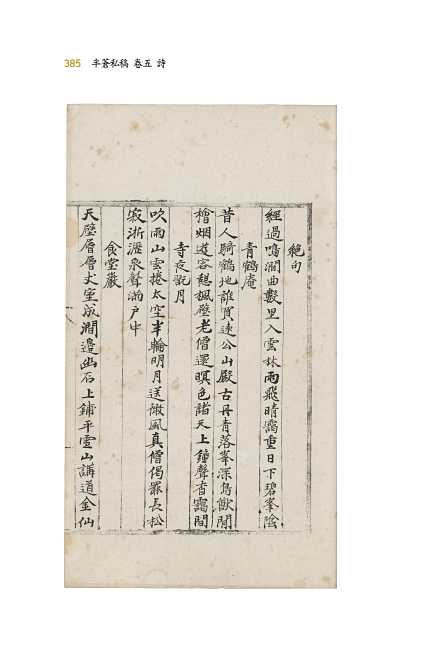 385 半蒼私稿 卷五 詩
絶句
經過鳴澗曲數里入雲林雨飛晴靄重日下碧峯陰
青鶴庵
昔人騎鶴地誰買遠公山殿古丹青落峯深鳥獸閒
檜烟遊客憩楓壁老僧還暝色諸天上鐘聲杳靄間
寺夜翫月
吹雨山雲捲太空半輪明月送微風真僧偈罷長松
寂淅瀝泉聲滿戶中
食堂巖
天壁層層丈室成澗邊幽石上鋪平靈山講道金仙